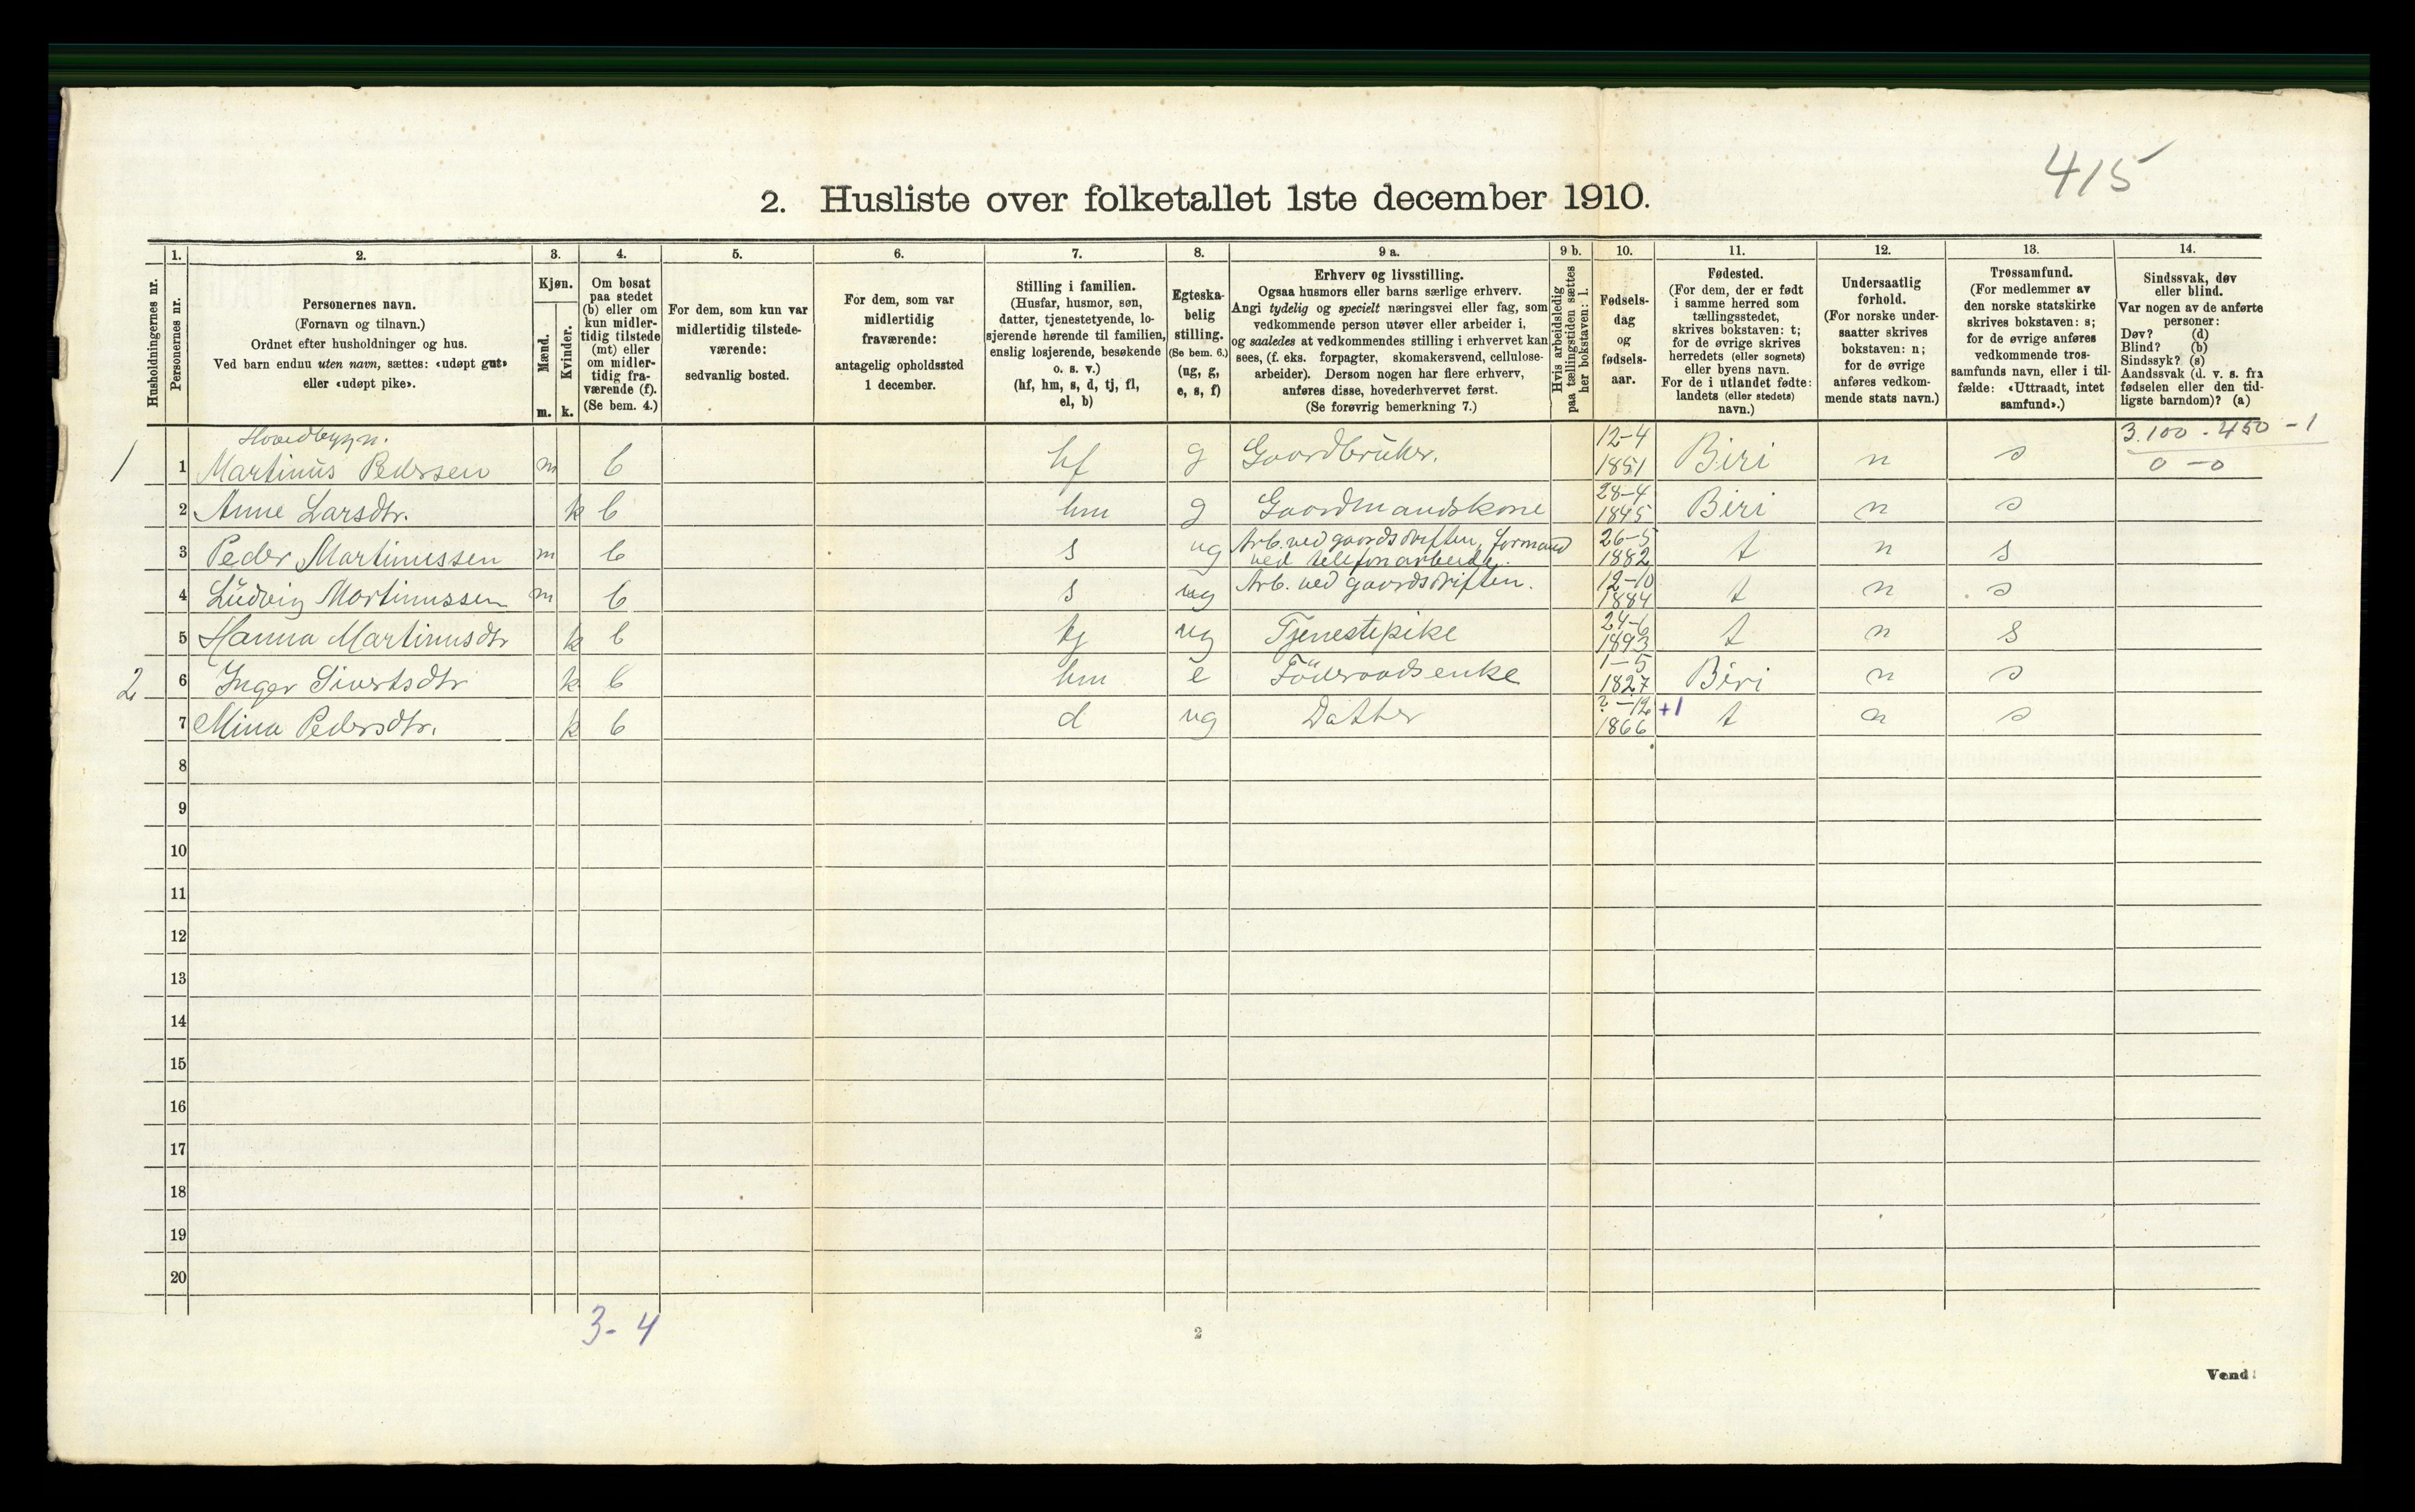 415
2. Husliste over folketallet 1ste december 1910.
Husholdningernes nr.
1.
Personernes nr.
2.
Personernes navn.
(Fornavn og tilnavn.)
Ordnet efter husholdninger og hus.
Ved barn endnu uten navn, sættes: «udøpt gut»
eller «udøpt pike».
3.
Kjøn.
Mænd.
Kvinder.
m. k.
4.
Om bosat
paa stedet
(b) eller om
kun midler-
tidig tilstede
(mt) eller
om midler-
tidig fra-
værende (f).
(Se bem. 4.)
5.
For dem, som kun var
midlertidig tilstede-
værende:
sedvanlig bosted.
6.
For dem, som var
midlertidig
fraværende:
antagelig opholdssted
1 december.
7.
Stilling i familien.
(Husfar, husmor, søn,
datter, tjenestetyende, lo-
sjerende hørende til familien,
enslig losjerende, besøkende
o. s. v.)
(hf, hm, s, d, tj, fl,
el, b)
8.
Egteska-
belig
stilling.
(Se bem. 6.)
(ug, g,
e, s, f)
9 a.
Erhverv og livsstilling.
Ogsaa husmors eller barns særlige erhverv.
Angi tydelig og specielt næringsvei eller fag, som
vedkommende person utøver eller arbeider i,
og saaledes at vedkommendes stilling i erhvervet kan
sees, (f. eks. forpagter, skomakersvend, cellulose-
arbeider). Dersom nogen har flere erhverv,
anføres disse, hovederhvervet først.
(Se forøvrig bemerkning 7.)
9 b.
Hvis arbeidsledig
paa tællingstiden sættes
her bokstaven: l.
10.
Fødsels-
dag
og
fødsels-
aar.
11.
Fødested.
(For dem, der er født
i samme herred som
tællingsstedet,
skrives bokstaven: t;
for de øvrige skrives
herredets (eller sognets)
eller byens navn.
For de i utlandet fødte:
landets (eller stedets)
navn.)
12.
Undersaatlig
forhold.
(For norske under-
saatter skrives
bokstaven: n;
for de øvrige
anføres vedkom-
mende stats navn.)
13.
Trossamfund.
(For medlemmer av
den norske statskirke
skrives bokstaven: s;
for de øvrige anføres
vedkommende tros-
samfunds navn, eller i til-
fælde: «Uttraadt, intet
samfund».)
14.
Sindssvak, døv
eller blind.
Var nogen av de anførte
personer:
Døv? (d)
Blind? (b)
Sindssyk? (s)
Aandssvak (d. v. s. fra
fødselen eller den tid-
ligste barndom)? (a)
Hovedbygn. 12-4 3.100 - 450 - 1
1 1 Martinus Pedersen m b hf g Gaardbruker. 1851 Biri n s 0 - 0
28-4
2 Anne Larsdtr. k b hm g Gaardmandskone 1845 Biri n s
Arb. ved gaardsdriften, formand 26-5
3 Peder Martinussen m b s ug ved telefonarbeide. 1882 t n s
12-10
4 Ludvig Martinussen m b s ug Arb. ved gaardsdriften. 1884 t n s
24-6
5 Hanna Martinusdtr k b tj ug Tjenestepike 1893 t n s
1-5
2 6 Inger Sivertsdtr k b hm e Föderaadsenke 1827 Biri n s
? -12 +1
7 Mina Pedersdtr. k b d ug Datter 1866 t n s
8
9
10
11
12
13
14
15
16
17
18
19
20
3-4
2
Vend!